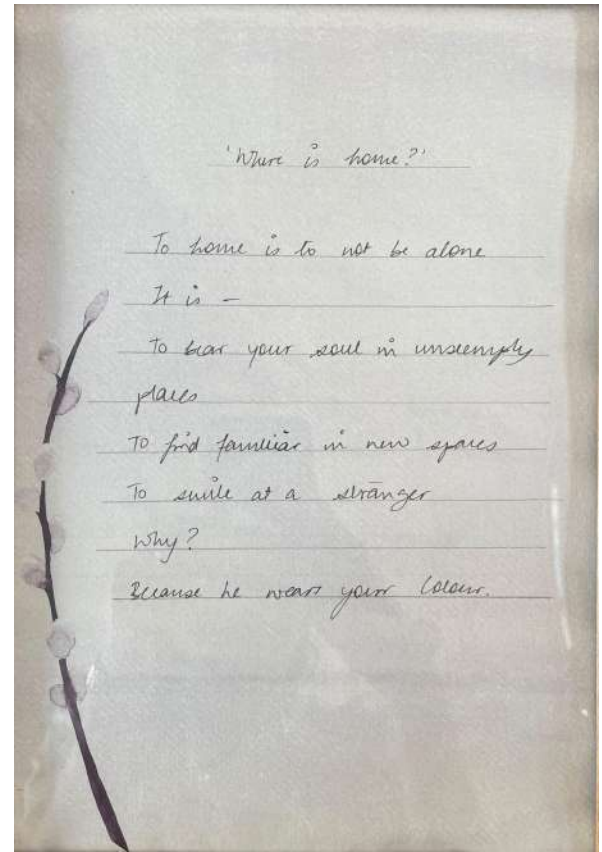 'Where is home?'
To home is to not be alone
It is –
To bear your soul in unseemply
places
To find familiar in new spaces
To smile at a stranger
Why?
Because he wears your colour.